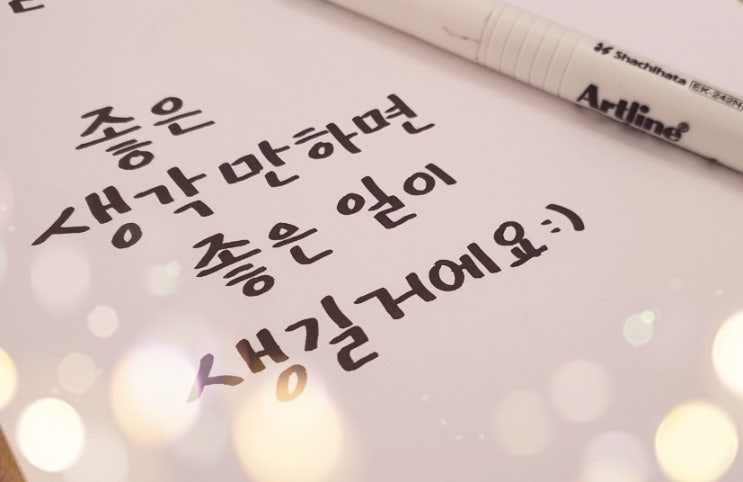 좋은
생각만하면
좋은 일이
생길거에요:)
Shachihata
EK-242N
Artline